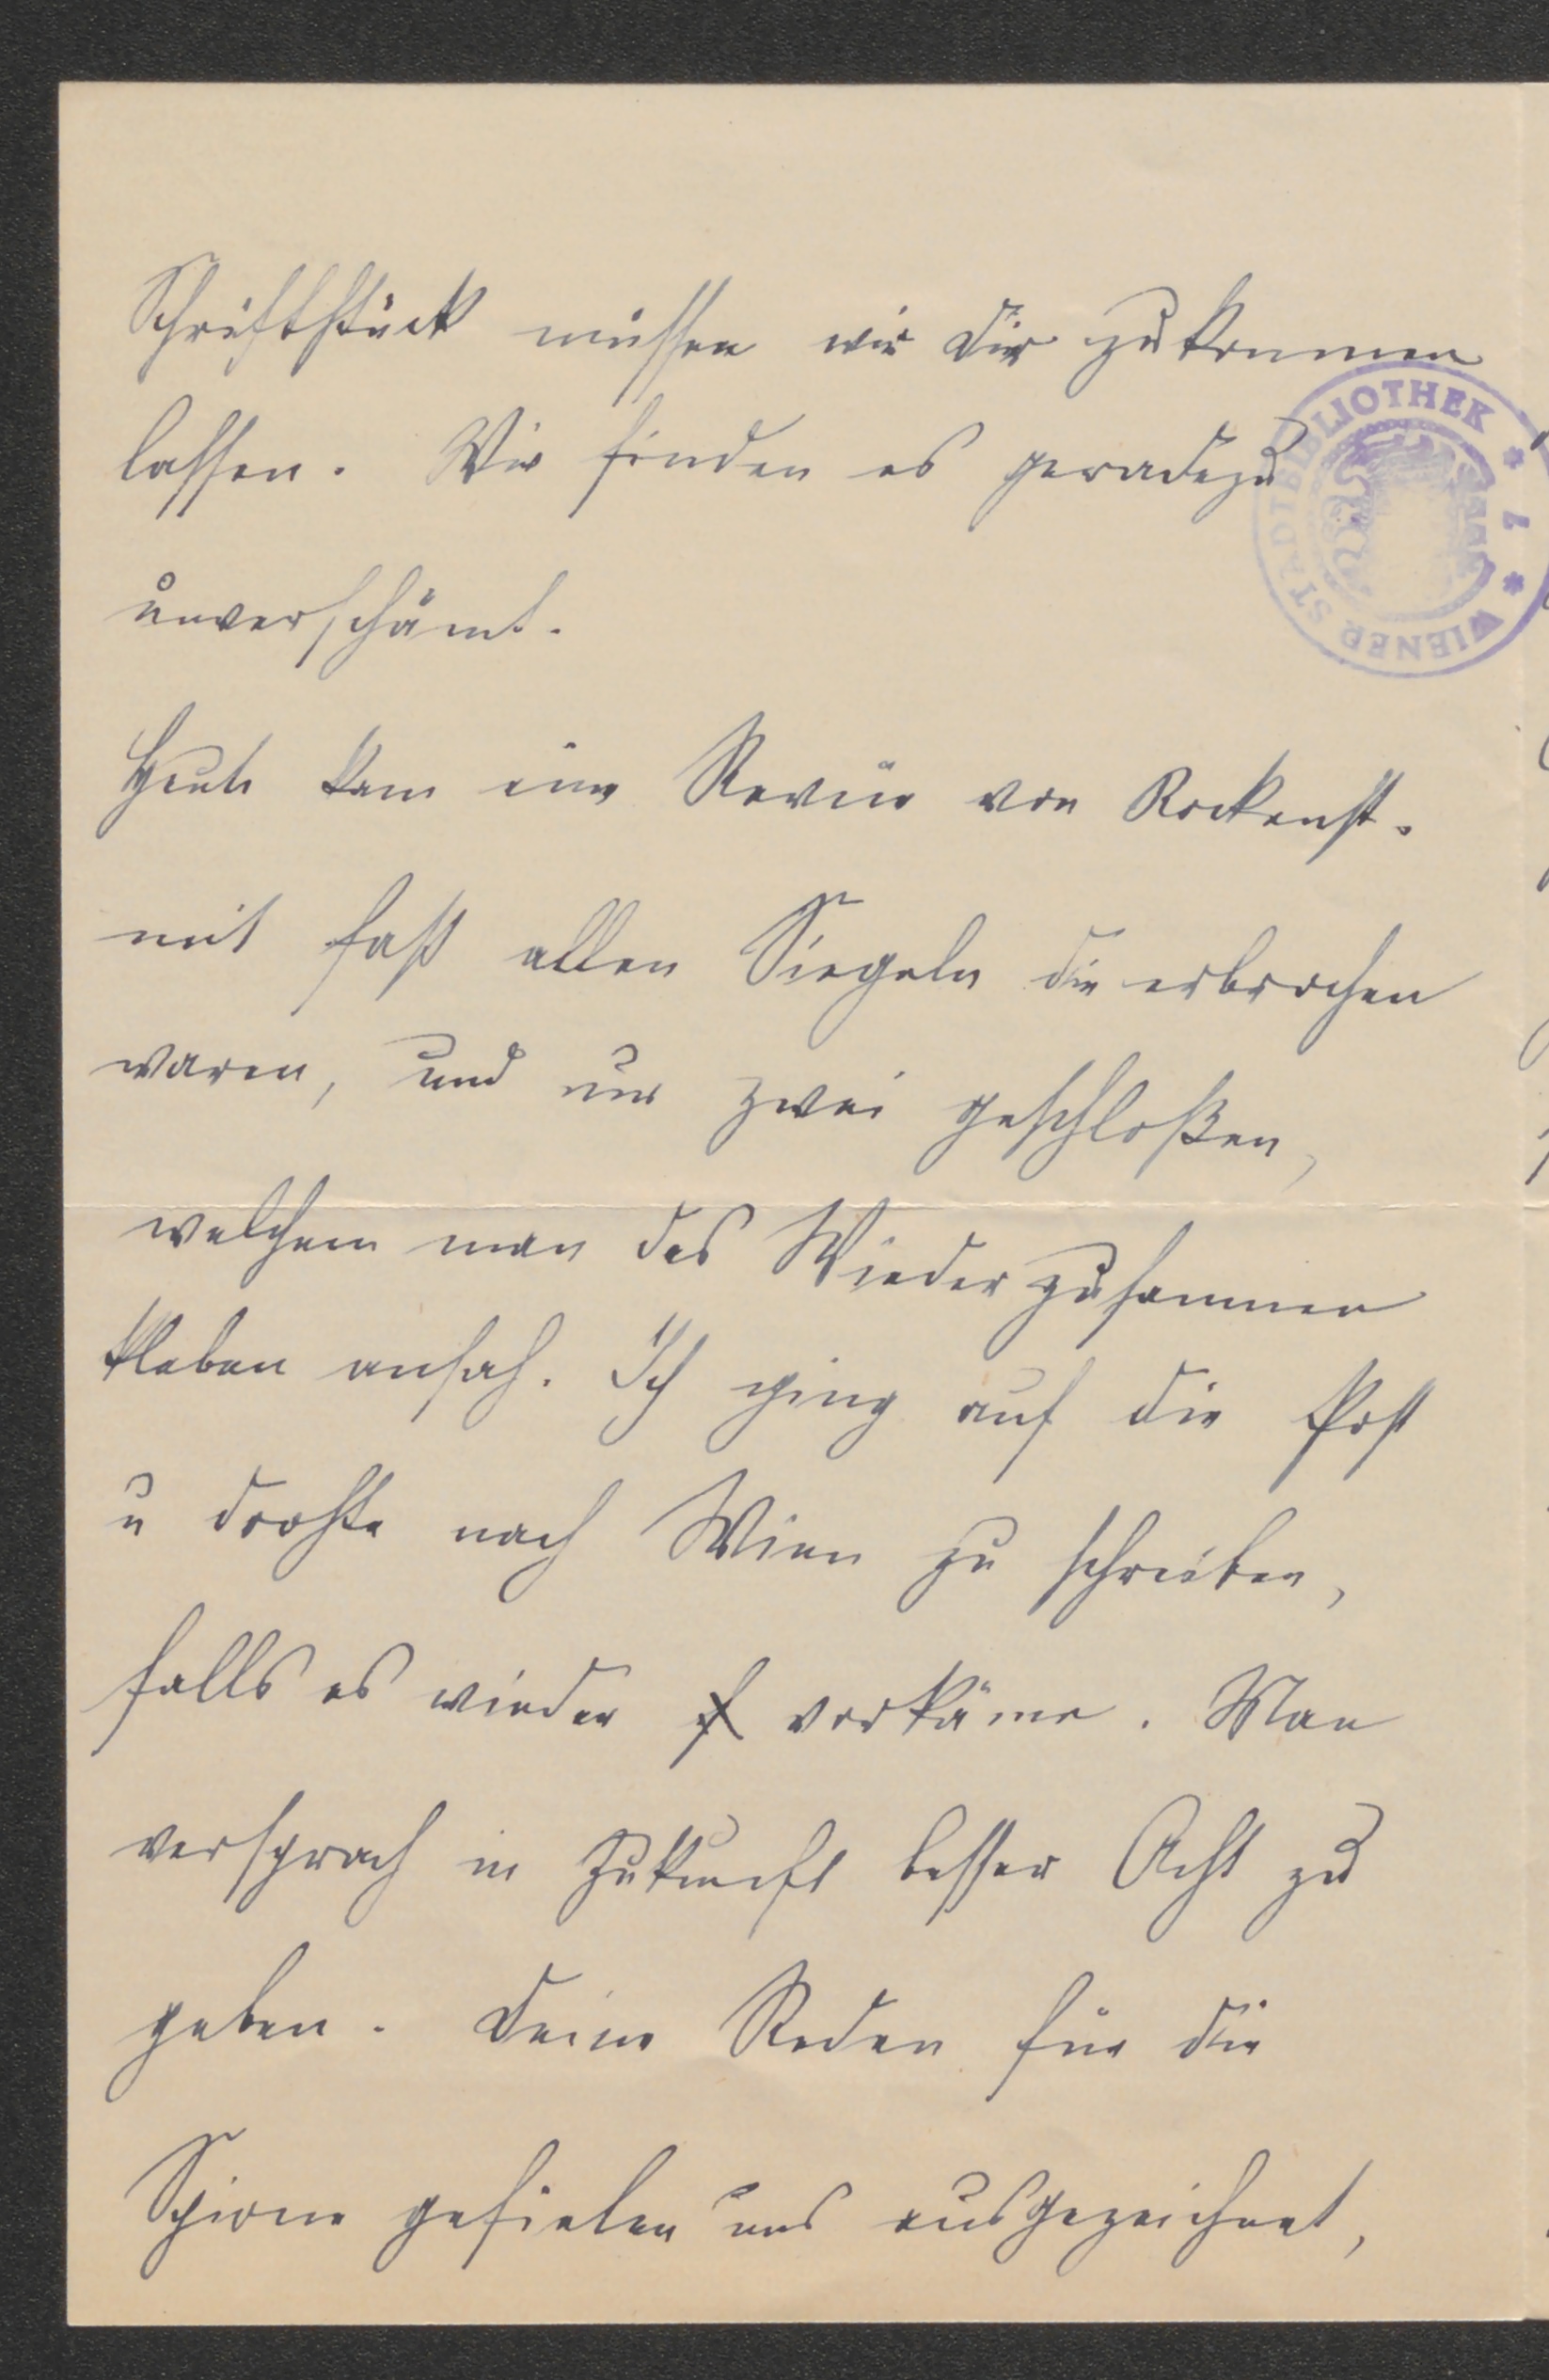 Schriftstück müssen wir Dir zukommen
lassen. Wir finden es geradezu
unverschämt.
Heute kam eine Revüe von Rockenst.
mit fast allen Siegeln die erbrochen
waren, und nur zwei geschloßen,
welchem man das Wiederzusammen
kleben ansah. Ich ging auf die Post
u drohte nach Wien zu schreiben,
falls es wieder vorkäme. Man
versprach in Zukunft besser Acht zu
geben. Deine Reden für die
Spione gefielen uns ausgezeichnet,
WIENER STADTBIBLIOTHEK